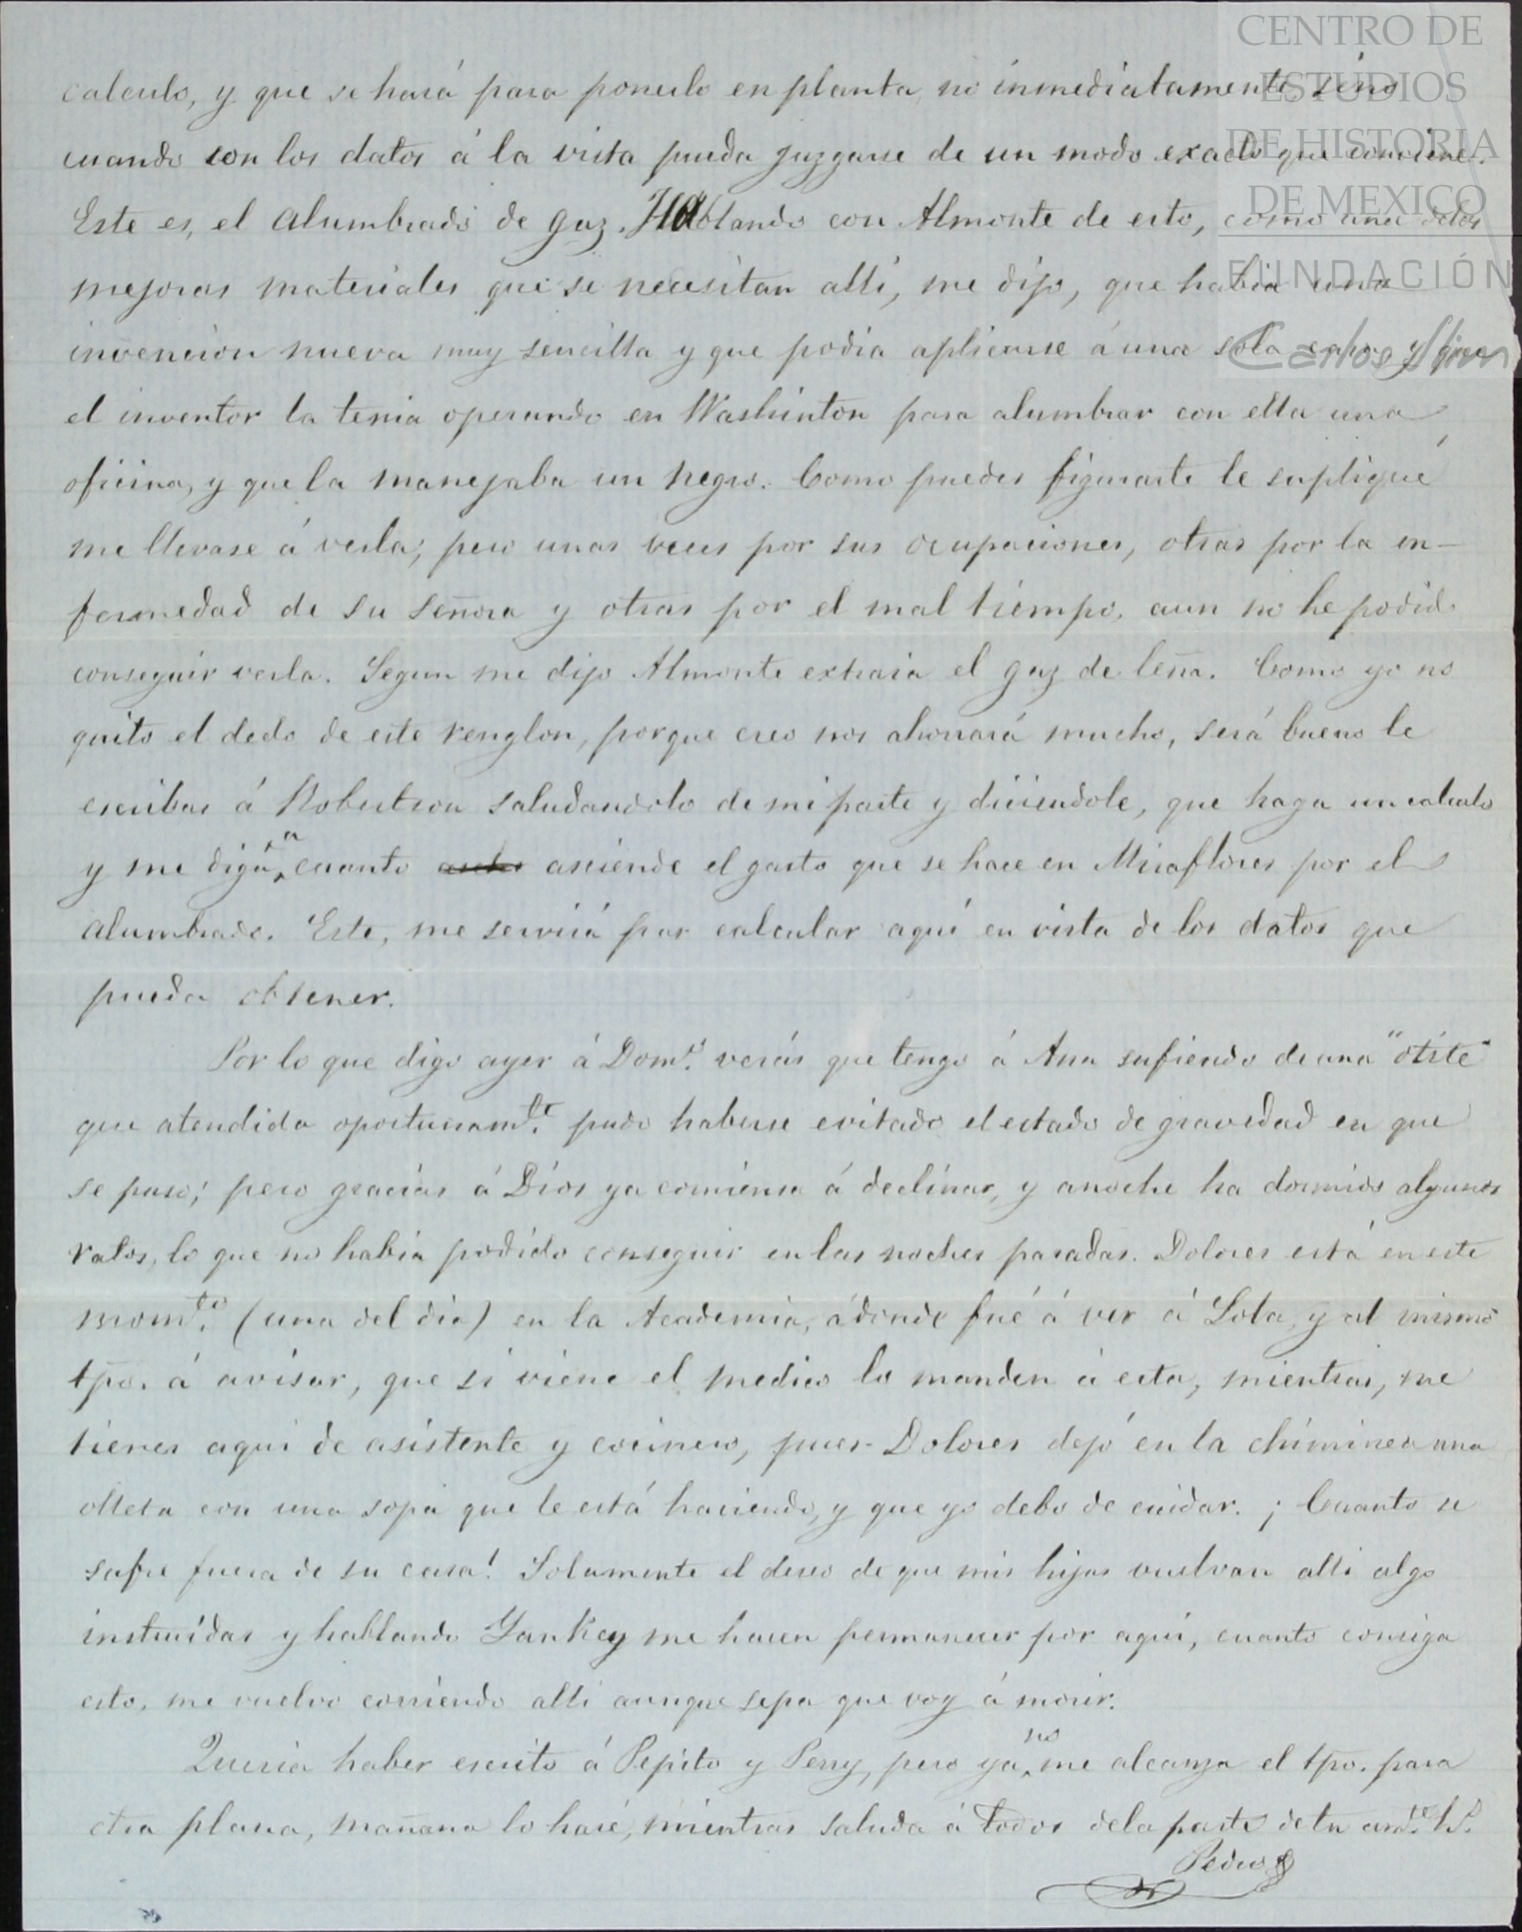 CENTRO DE
ESTUDIOS
DE HISTORIA
DE MEXICO
FUNDACIÓN
Carlos Slim
calculo, y que se hará para ponerlo en planta, no inmediatamente sino
cuando con los datos á la vista pueda juzgarse de un modo exacto que conviene.
Este es, el alumbrado de gaz. Hablando con Almonte de esto, como una de las
mejoras materiales que se necesitan allí, me dijo, que habia una
invencion nueva muy sencilla y que podia aplicarse á una sola casa y que
el inventor la tenia operando en Washinton para alumbrar con ella una
oficina, y que la manejaba un negro. Como puedes figurarte le supliqué
me llevase á verla; pero unas veces por sus ocupaciones, otras por la en-
fermedad de su Señora y otras por el mal tiempo, aun no he podido
conseguir verla. Segun me dijo Almonte extraia el gaz de leña. Como yo no
quito el dedo de este renglon, porque creo nos ahorrará mucho, será bueno le
escribas á Robertson saludandolo de mi parte y diciendole, que haga un calculo
y me diga á cuanto asciende el gasto que se hace en Miraflores por el
alumbrado. Este, me servirá par calcular aquí en vista de los datos que
pueda obtener.
Por lo que digo ayer á Dom.º verás que tengo á Ana sufiendo de una "otite"
que atendida oportunam.te pudo haberse evitado el estado de gravedad en que
se puso; pero gracias á Dios ya comiensa á declinar, y anoche ha dormido algunos
ratos, lo que no habia podido conseguir en las noches pasadas. Dolores está en este
mom.to (una del dia) en la Academia, á donde fué á ver á Lola, y al mismo
tpo. á avisar, que si viene el medico lo manden á esta, mientras, me
tienes aqui de asistente y cocinero, pues Dolores dejó en la chiminea una
olleta con una sopa que le está haciendo, y que yo debo de cuidar. ¡Cuanto se
sufre fuera de su casa! Solamente el deseo de que mis hijas vuelvan allí algo
instruidas y hablando Yankey me hacen permanecer por aquí, cuanto consiga
esto, me vuelvo corriendo allí aunque sepa que voy á morir.
Queria haber escrito á Pepito y Perry, pero ya no me alcanza el tpo. para
otra plana, mañana lo haré, mientras saluda á todos de la parte de tu
Pedro